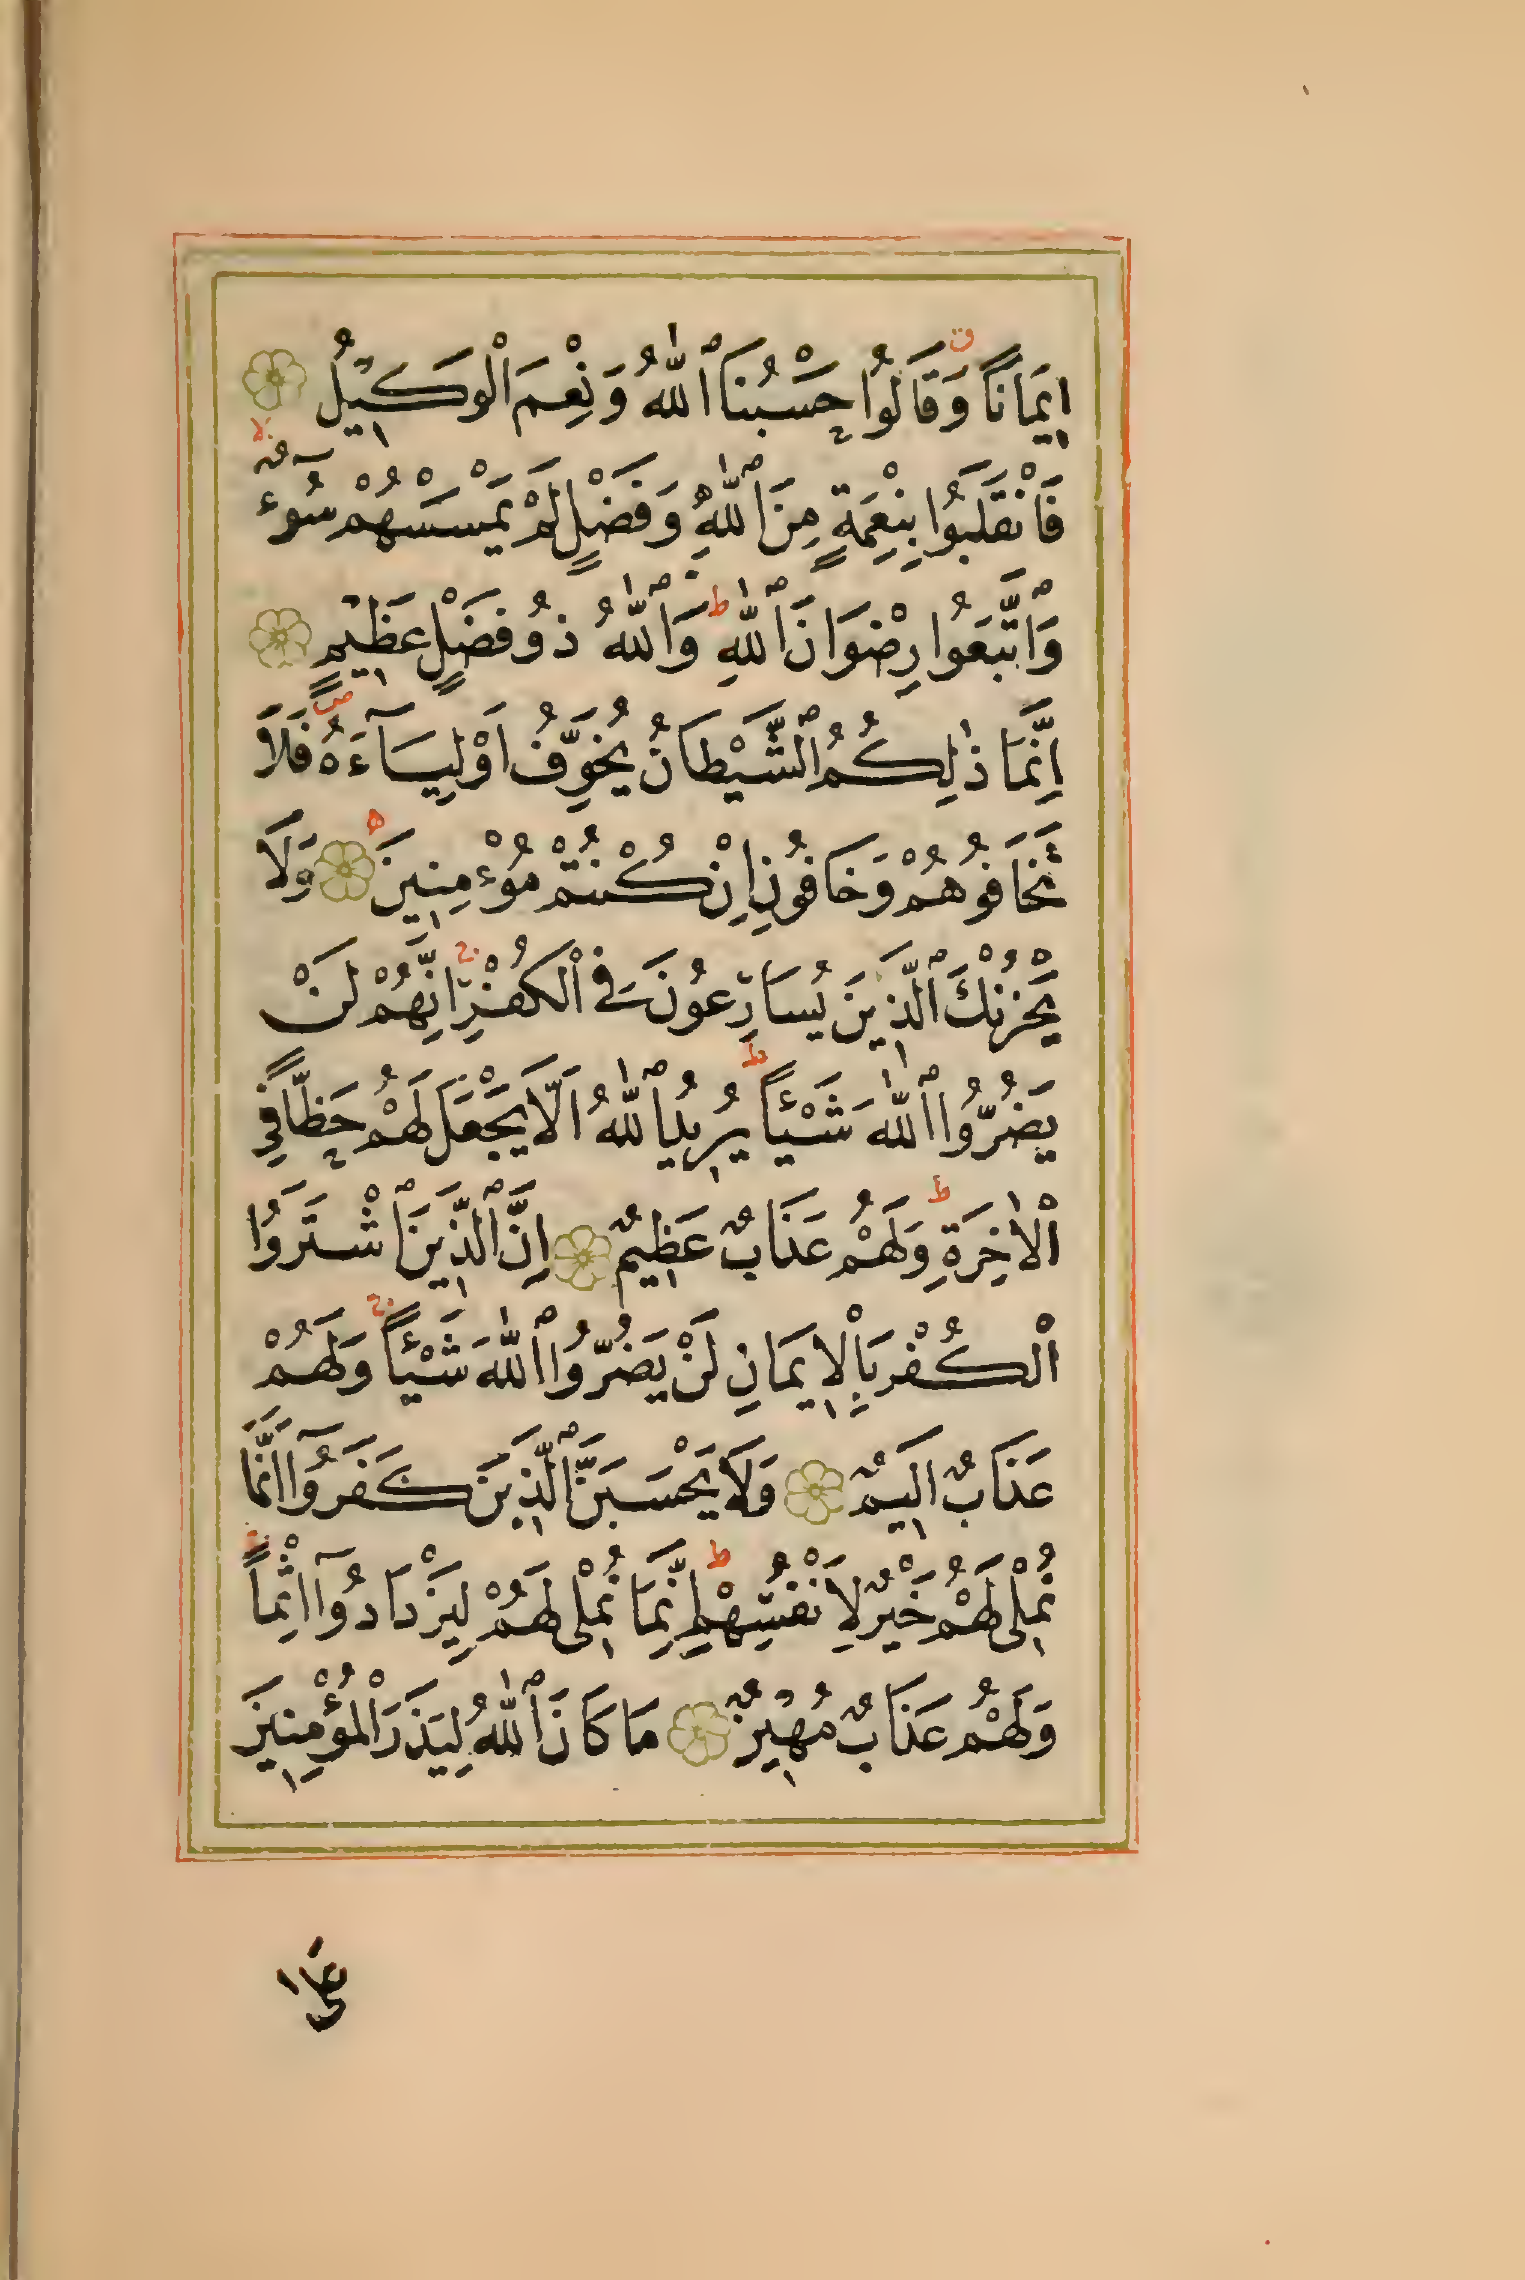 اِيمَانًا وَقَالُوا حَسْبُنَا ٱللّٰهُ وَنِعْمَ الْوَكِيلُ
فَانْقَلَبُوا بِنِعْمَةٍ مِنَ ٱللّٰهِ وَفَضْلٍ لَمْ يَمْسَسْهُمْ سُٓوءٌ
وَٱتَّبَعُوا رِضْوَانَ ٱللّٰهِ ط وَٱللّٰهُ ذُو فَضْلٍ عَظِيمٍ
اِنَّمَا ذٰلِكُمُ ٱلشَّيْطَانُ يُخَوِّفُ اَوْلِيَٓاءَهُ ص فَلَا
تَخَافُوهُمْ وَخَافُونِ اِنْ كُنْتُمْ مُؤْمِنِينَ وَلَا
يَحْزُنْكَ ٱلَّذِينَ يُسَارِعُونَ فِي ٱلْكُفْرِ ج اِنَّهُمْ لَنْ
يَضُرُّوا ٱللّٰهَ شَيْـًٔا ط يُرِيدُ ٱللّٰهُ اَلَّا يَجْعَلَ لَهُمْ حَظًّا فِي
الْاٰخِرَةِ ط وَلَهُمْ عَذَابٌ عَظِيمٌ اِنَّ ٱلَّذِينَ ٱشْتَرَوُا
الْكُفْرَ بِالْاِيمَانِ لَنْ يَضُرُّوا ٱللّٰهَ شَيْـًٔا ج وَلَهُمْ
عَذَابٌ اَلِيمٌ وَلَا يَحْسَبَنَّ ٱلَّذِينَ كَفَرُٓوا اَنَّمَا
نُمْلِي لَهُمْ خَيْرٌ لِاَنْفُسِهِمْ ط اِنَّمَا نُمْلِي لَهُمْ لِيَزْدَادُٓوا اِثْمًا ج
وَلَهُمْ عَذَابٌ مُهِينٌ مَا كَانَ ٱللّٰهُ لِيَذَرَ الْمُؤْمِنِينَ
عَلٰى